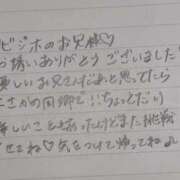 ビジホのお兄様♡
お誘いありがとうございました!
優しいお兄さんだぁと思ってたら
まさかの同郷で!!ちょっとだけ
しいことを言ったけどまた挑戦
させてね♡気をつけて帰ってね♪